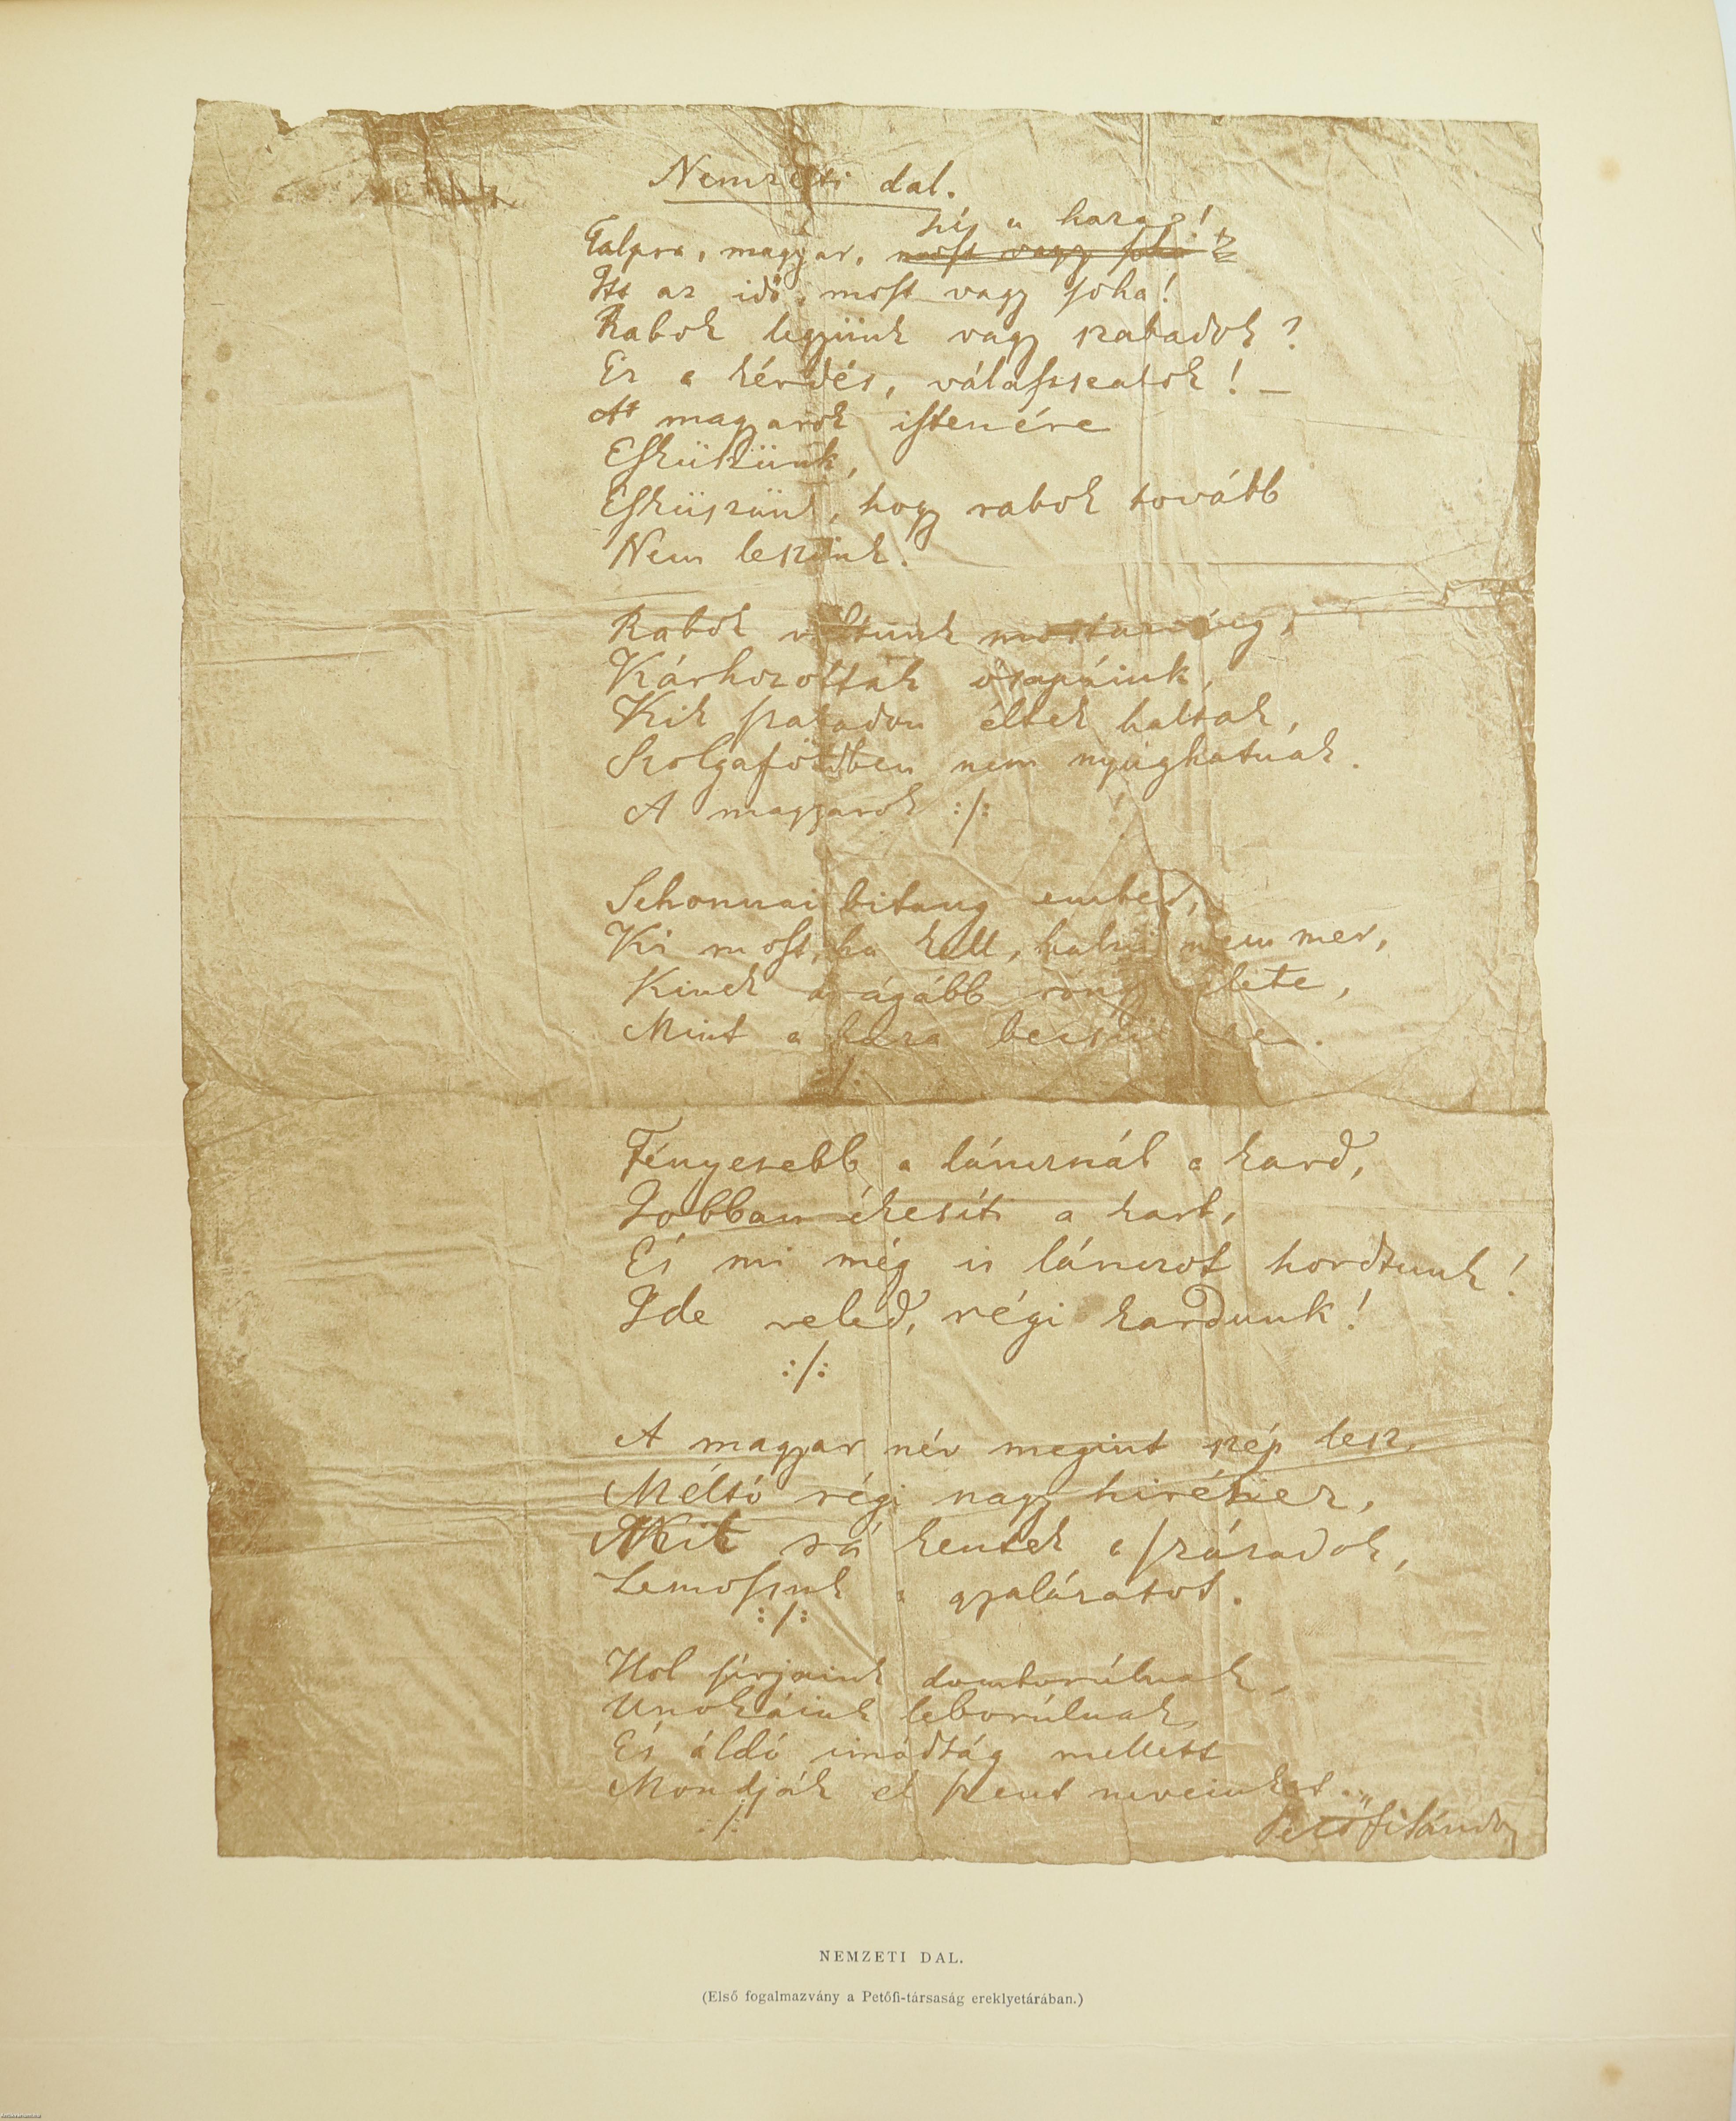 Nemzeti dal.
hí a haza!
Talpra, magyar, most vagy soha!
Itt az idő, most vagy soha!
Rabok legyünk vagy szabadok?
Ez a kérdés, válasszatok! —
A magyarok istenére
Esküszünk,
Esküszünk, hogy rabok tovább
Nem leszünk.
Rabok voltunk mostanáig,
Kárhozottak ősapáink,
Kik szabadon éltek haltak,
Szolgaföldben nem nyúghatnak.
A magyarok :/:
Sehonnai bitang ember,
Ki most, ha kell, halni nem mer,
Kinek drágább rongy élete,
Mint a haza becsülete.
:/:
Fényesebb a láncznál a kard,
Jobban ékesíti a kart,
És mi még is lánczot hordtunk!
Ide veled, régi kardunk!
:/:
A magyar név megint szép lesz,
Méltó régi nagy hiréhez,
Mit rá kentek a századok,
Lemossuk a gyalázatot.
:/:
Hol sírjaink domborúlnak,
Unokáink leborúlnak,
És áldó imádság mellett
Mondják el szent neveinket...
:/:
Petőfi Sándor
NEMZETI DAL.
(Első fogalmazvány a Petőfi-társaság ereklyetárában.)